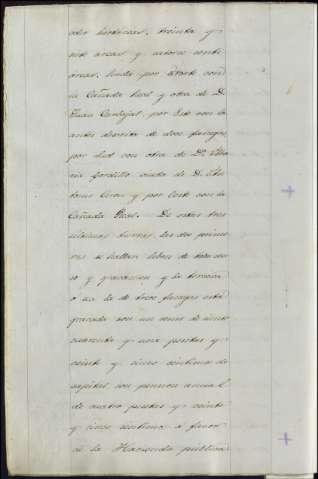 ocho hectareas, treinta y
siete areas y catorce centi
areas, linda por Norte con
la Cañada Real y otra de D.
Juan Carbajal, por Este con la
antes descrita de doce fanegas,
por Sud con otra de Dª Ma
ria Gordillo viuda de D. An
tonio Ceron y por Oeste con la
Cañada Real. De estas tres
ultimas tierras, las dos prime
ras se hallan libres de todo cen
so y gravamen y la tercera
o sea la de trece fanegas está
gravada con un censo de ciento
cuarenta y una pesetas y
veinte y cinco centimos de
capital con pension anual
de cuatro pesetas y veinte
y cinco centimos a favor
de la Hacienda publica